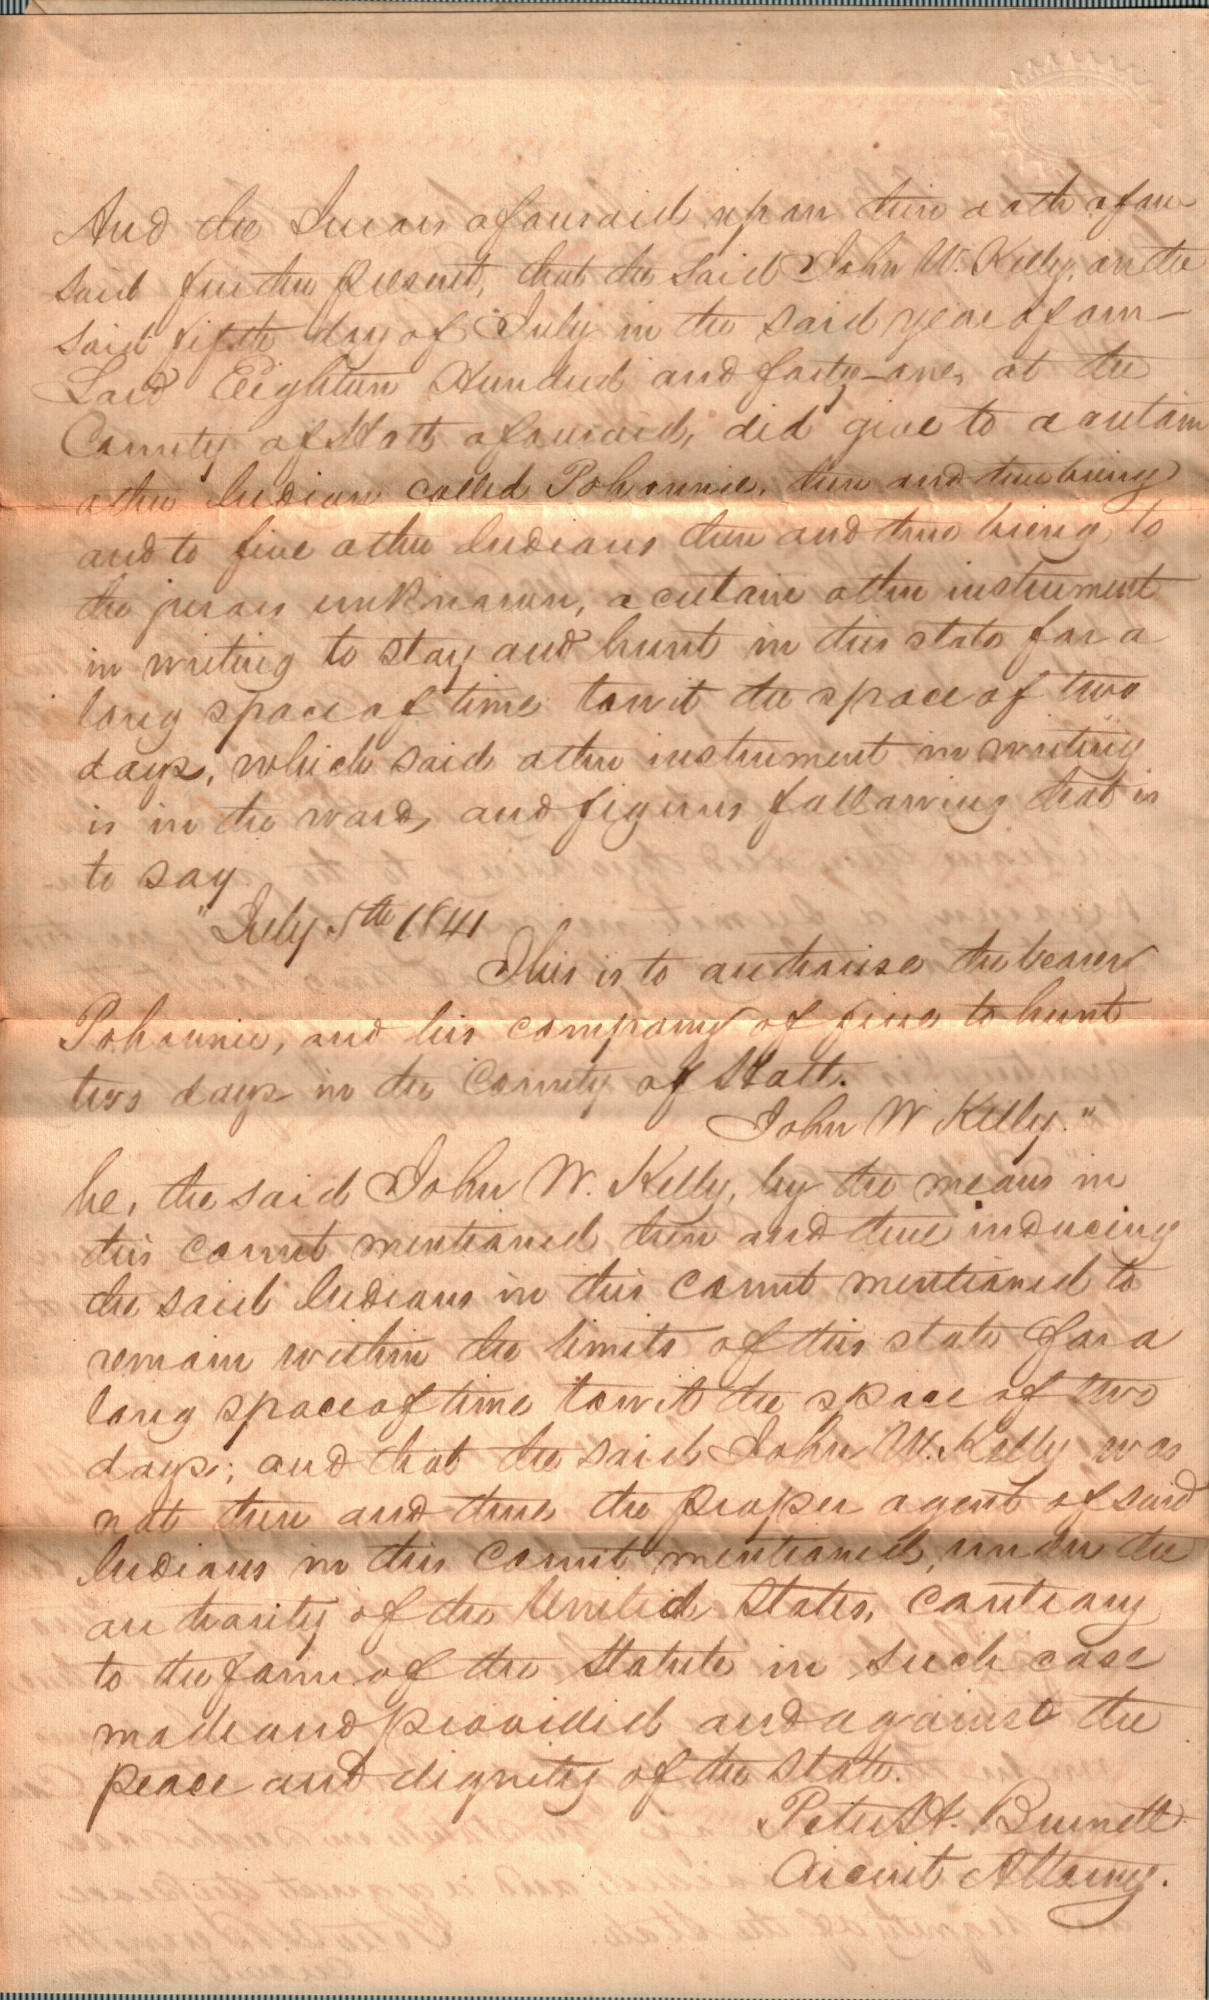 And the Jurors aforesaid upon their oath afore-
said further present, that the said John W. Kelly, on the
said fifth day of July in the said year of our
Lord Eighteen Hundred and forty-one, at the
County of Holt aforesaid, did give to a certain
other Indian called Pohonnie, then and there being
and to five other Indians then and there being, to
the jurors unknown, a certain other instrument
in writing to stay and hunt in this state for a
long space of time towit the space of two
days, which said other instrument in writing
is in the words and figures following that is
to say
"July 5th 1841
This is to authorise the bearer
Pohonnie, and his company of five to hunt
two days in the County of Holt.
John W Kelly."
he, the said John W. Kelly, by the means in
this count mentioned then and there inducing
the said Indians in this count mentioned to
remain within the limits of this state for a
long space of time towit the space of two
days; and that the said John W. Kelly was
not then and there the proper agent of said
Indians in this count mentioned, under the
authority of the United States, contrary
to the form of the Statute in such case
made and provided and against the
peace and dignity of the State.
Peter H. Burnett
Circuit Attorney.